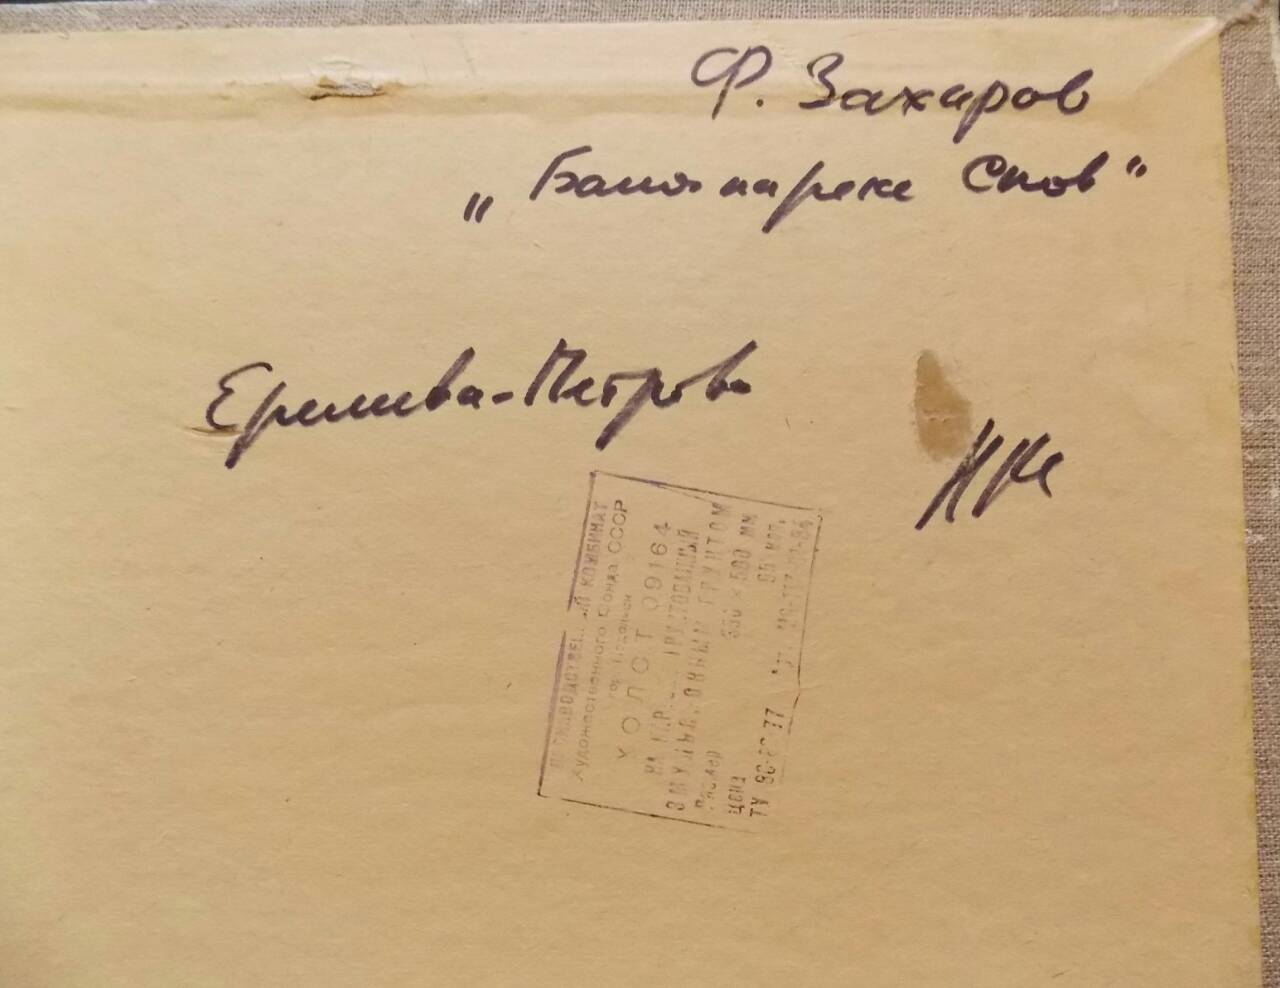 Ф. Захаров
„Баня на реке Снов"
Еремеева-Петрова
ПРОИЗВОДСТВЕННЫЙ КОМБИНАТ
Художественного Фонда СССР
гор. Подольск
ХОЛСТ 09164
ГРУНТОВАННЫЙ
ЭМУЛЬСИОННЫМ ГРУНТОМ
Размер × 500 мм
Цена 95 коп.
ТУ